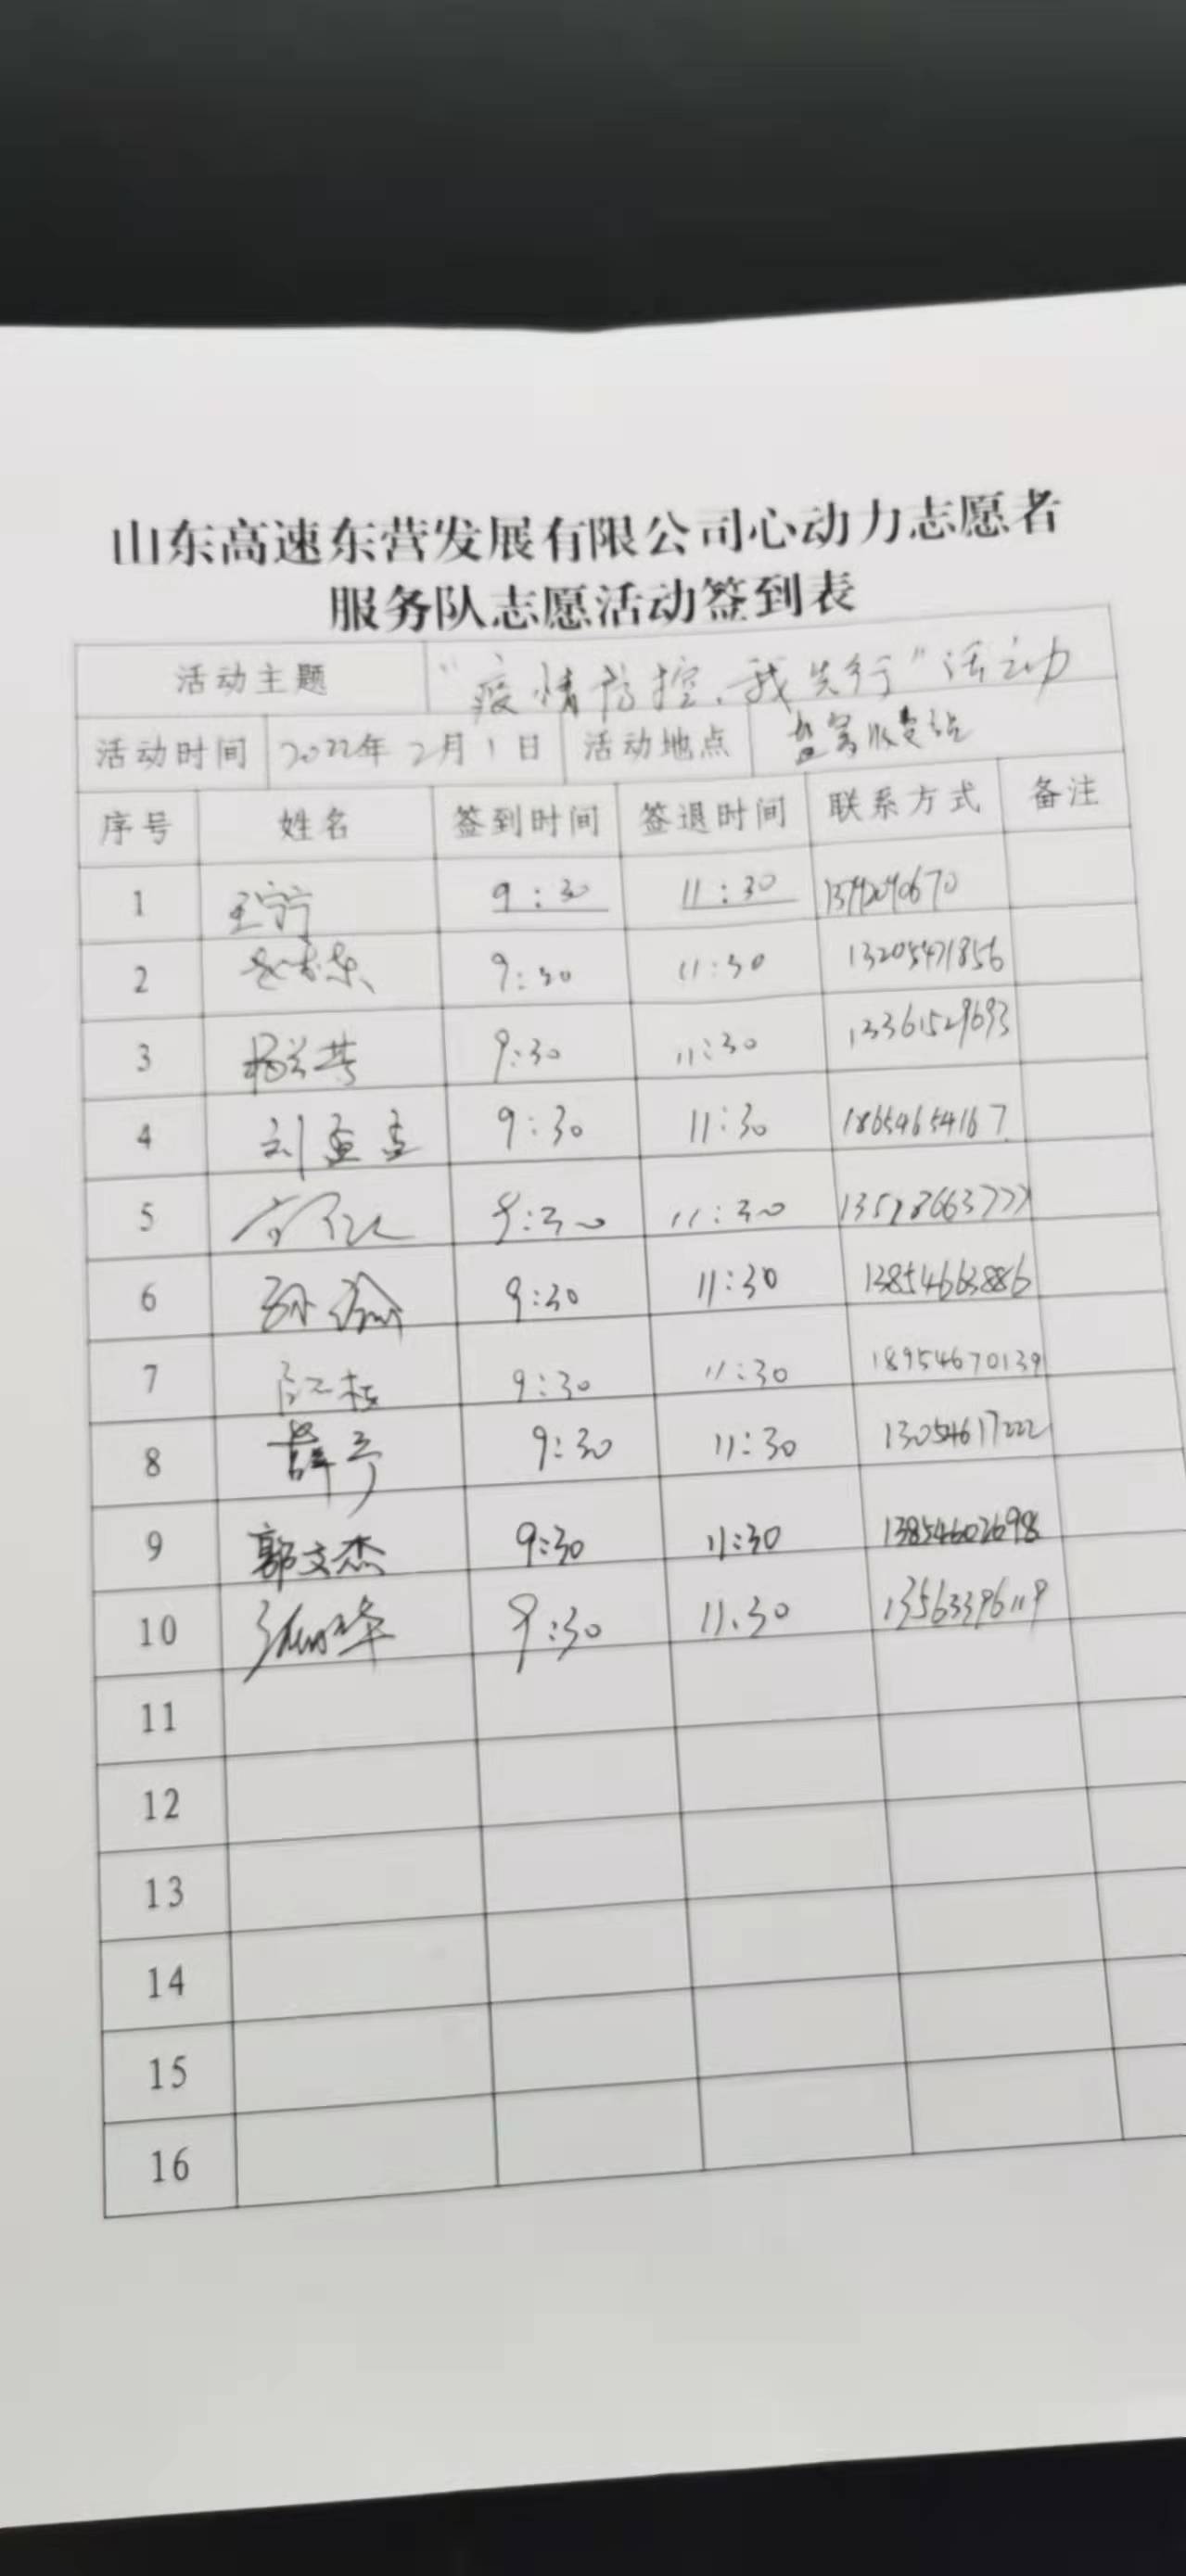 山东高速东营发展有限公司心动力志愿者
服务队志愿活动签到表
活动主题 “疫情防控、我先行”活动
活动时间 2022年2月1日 活动地点 收费站
序号 姓名 签到时间 签退时间 联系方式 备注
1 王宁 9:30 11:30
2 9:30 11:30 13205471856
3 9:30 11:30 13361529693
4 刘孟孟 9:30 11:30 18654654167
5 9:30 11:30
6 孙瑜 9:30 11:30 13854663886
7 9:30 11:30 18954670139
8 薛亮 9:30 11:30 13054617222
9 郭文杰 9:30 11:30 13854602698
10 9:30 11:30 13563396119
11
12
13
14
15
16